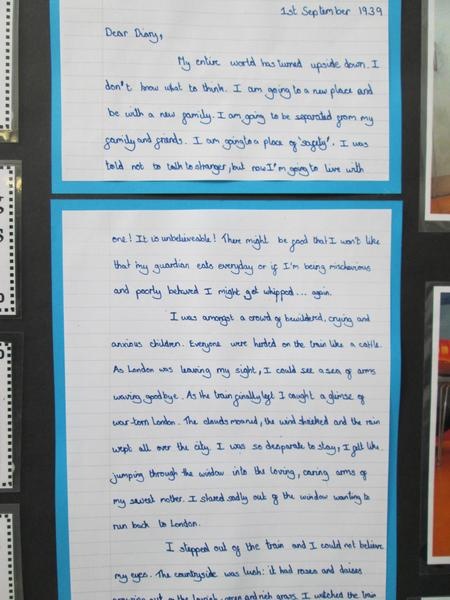 1st September 1939
Dear Diary,
My entire world has turned upside down. I
don't know what to think. I am going to a new place and
be with a new family. I am going to be separated from my
family and friends. I am going to a place of 'safety'. I was
told not to talk to stranger, but now I'm going to live with
one! It is unbelieveable! There might be food that I won't like
that my guardian eats everyday or if I'm being mischevious
and poorly behaved I might get whipped... again.
I was amongst a crowd of bewildered, crying and
anxious children. Everyone were herded on the train like a cattle.
As London was leaving my sight, I could see a sea of arms
waving goodbye. As the train finally left I caught a glimse of
war-torn London. The clouds moaned, the wind shrieked and the rain
wept all over the city. I was so desparate to stay, I felt like
jumping through the window into the loving, caring arms of
my sweet mother. I stared sadly out of the window wanting to
run back to London.
I stepped out of the train and I could not believe
my eyes. The countryside was lush: it had roses and daises
growing out of the lavish, green and rich grass. I watched the train